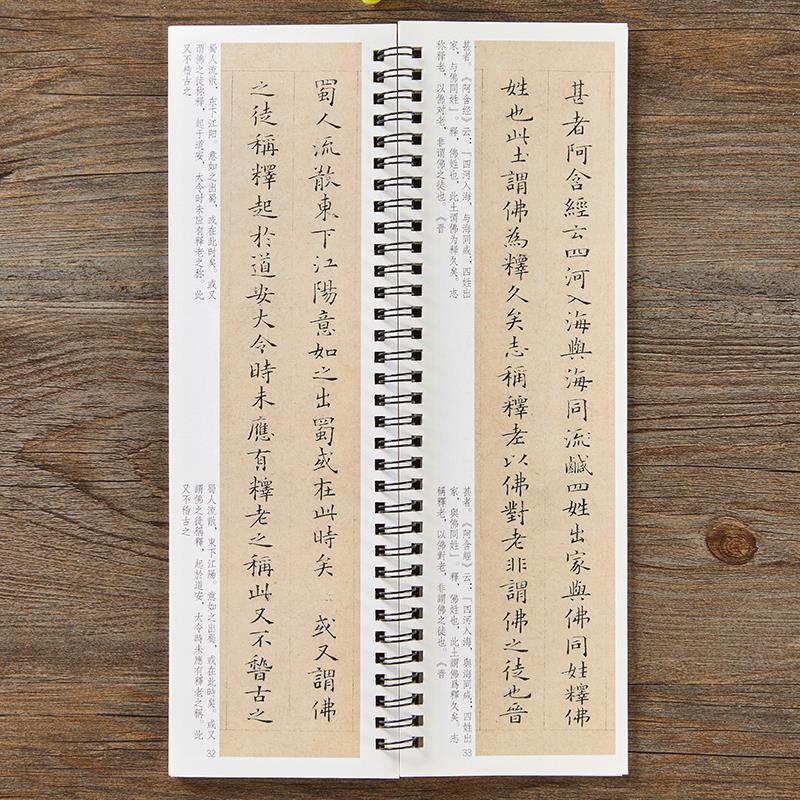 蜀人流散東下江陽意如之出蜀或在此時矣 或又謂佛
之徒稱釋起於道安大令時未應有釋老之稱此又不稽古之
蜀人流散，东下江阳。意如之出蜀，或在此时矣。或又
谓佛之徒称释，起于道安，大令时未应有释老之称。此
又不稽古之
蜀人流散，東下江陽。意如之出蜀，或在此時矣。或又
謂佛之徒稱釋，起於道安，大令時未應有釋老之稱。此
又不稽古之
32
甚者阿含經云四河入海與海同流鹹四姓出家與佛同姓釋佛
姓也此土謂佛為釋久矣志稱釋老以佛對老非謂佛之徒也晉
甚者。《阿含经》云：「四河入海，与海同咸，四姓出
家，与佛同姓」。释，佛姓也，此土谓佛为释久矣。志
称释老，以佛对老，非谓佛之徒也。《晋
甚者。《阿含經》云：「四河入海，與海同咸，四姓出
家，與佛同姓」。釋，佛姓也，此土謂佛爲釋久矣。志
稱釋老，以佛對老，非謂佛之徒也。《晉
33